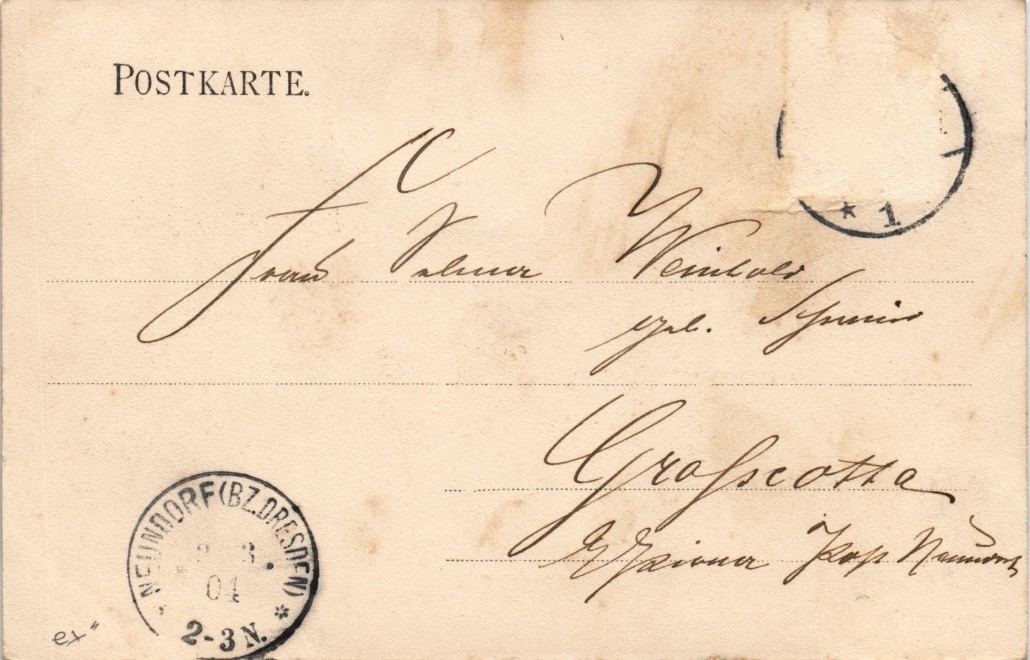 POSTKARTE.
* 1
Frau Selma Weinhold
geb.
Grosscotta
Post Neundorf
NEUNDORF (BZ. DRESDEN)
3.
04
2-3 N.
*
ex"